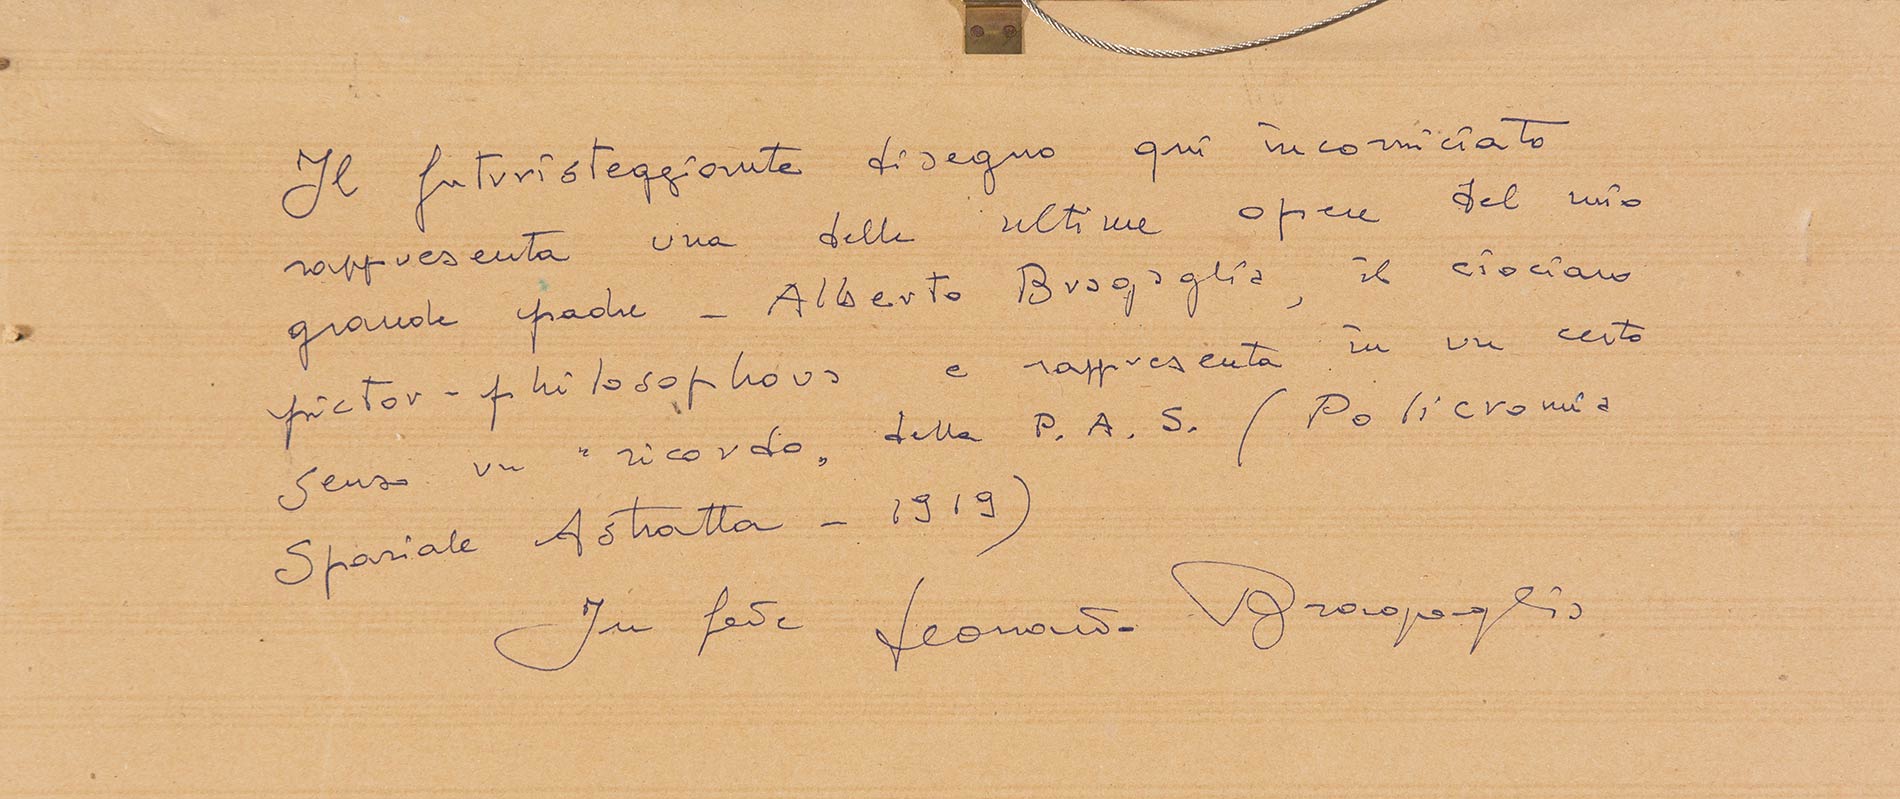 Il futuristeggiante disegno qui incorniciato
rappresenta una delle ultime opere del mio
grande padre - Alberto Bragaglia, il ciociaro
pictor-philosophous e rappresenta in un certo
senso un "ricordo" della P.A.S. (Policromia
Spaziale Astratta - 1919)
In fede Leonardo Bragaglia